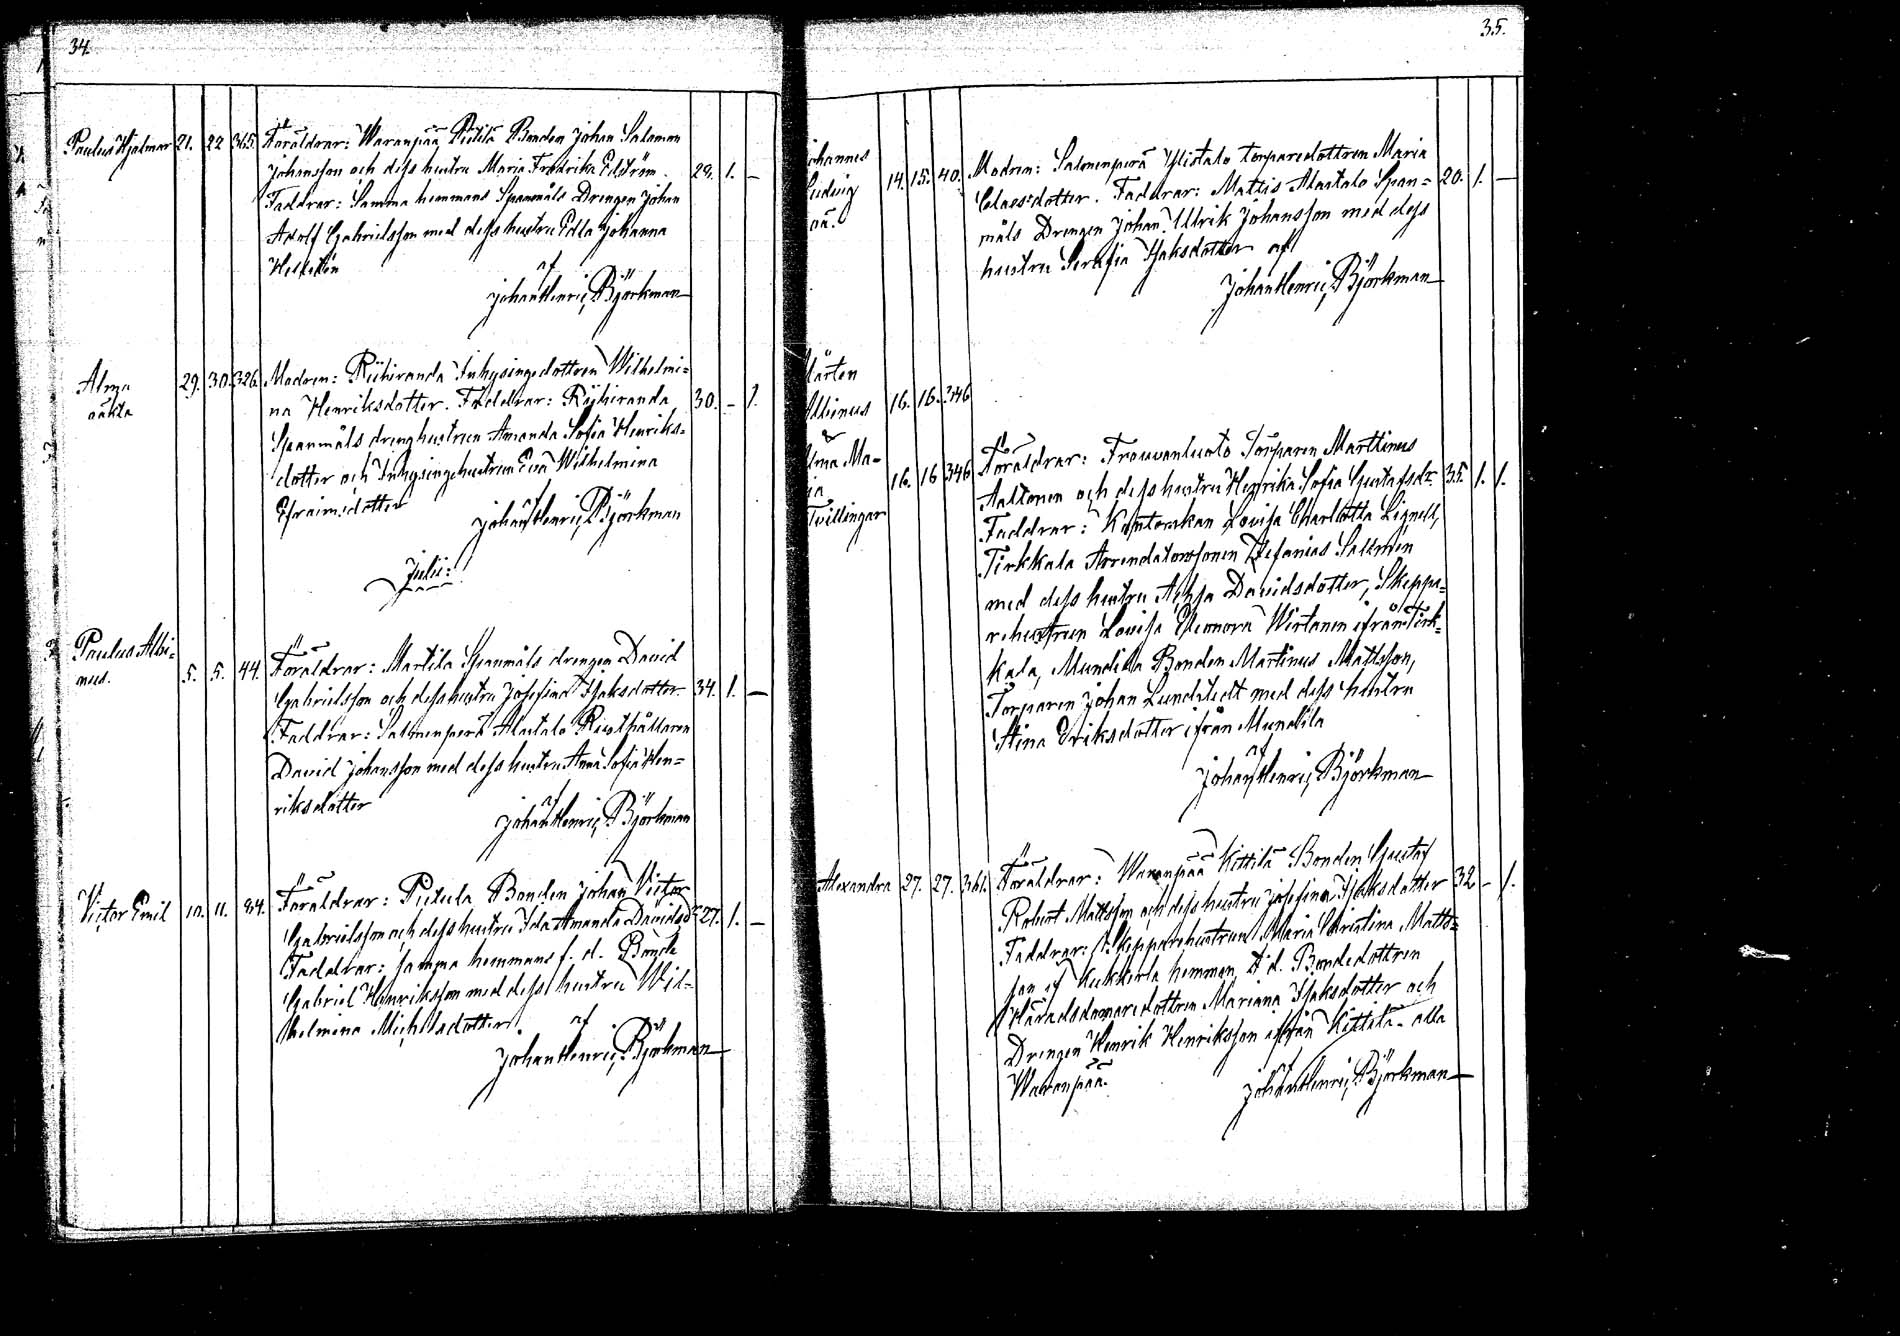 34.
Paulus Hjalmar 21. 22 365. Föräldrar: Waranpää Pietilä Bonden Johan Salomon
Johansson och dess hustru Maria Fredrika Edström. 29. 1. —
Faddrar: Samma hemmans Spanmåls Drengen Johan
Adolf Gabrielsson med dess hustru Edla Johanna
af
Johan Henric Björkman
Alma 29. 30. 326. Modren: Riihiranda Inhysingedottren Wilhelmi=
oäkta na Henriksdotter. Faddrar: Riihiranda 30. – 1.
Spanmåls drenghustrun Amanda Sofia Henriks=
dotter och Inhysingehustrun Eva Wilhelmina
Efraimsdotter af
Johan Henric Björkman
Julii:
Paulus Albi=
nus. 5. 5. 44. Föräldrar: Martila Spanmåls drengen David
Gabrielsson och dess hustru Josefina Isaksdotter. 34. 1. —
Faddrar: Salmenperä Alastalo Rusthållaren
David Johansson med dess hustru Anna Sofia Hen=
riksdotter af
Johan Henric Björkman
Victor Emil 10. 11. 84. Föräldrar: Pietula Bonden Johan Victor
Gabrielsson och dess hustru Ida Amanda Davidsdr 27. 1. —
Faddrar: samma hemmans f. d. Bonde
Gabriel Henriksson med dess hustru Wil=
helmina Michelsdotter. af
Johan Henric Björkman
35.
ohannes
Ludvig 14. 15. 40. Modren: Salmenperä Ylistalo torparedottren Maria
oä. Claesdotter. Faddrar: Mattis Alastalo Span= 20. 1. —
måls Drengen Johan Ulrik Johansson med dess
hustru Serafia Isaksdotter af
Johan Henric Björkman
Mårten
Albinus 16. 16. 346
&
lma Ma-
ia 16. 16 346 Föräldrar: Frouvanluoto Torparen Marttinus
Tvillingar Aaltonen och dess hustru Henrika Sofia Gustafsdr. 35. 1. 1.
Faddrar: Kantorskan Lovisa Charlotta Lignell,
Tirkkala Arrendatorssonen Stefanias Salmén
med dess hustru Achsa Davidsdotter, Skeppa=
rehustrun Lovisa Eleonora Wirtanen ifrån Tirk=
kala, Mundila Bonden Martinus Mattsson,
Torparen Johan Lundstedt med dess hustru
Stina Eriksdotter ifrån Mundila
af
Johan Henric Björkman
Alexandra 27. 27. 361. Föräldrar: Waranpää Kittilä Bonden Gustaf
Robert Mattsson och dess hustru Josefina Isaksdotter 32 – 1.
Faddrar: Skepparehustrun Maria Christina Matts=
son af Kukkerla hemman, f. d. Bondedottren
Häradsdomaredottren Mariana Isaksdotter och
Drengen Henrik Henriksson ifrån Kittilä – alla
Waranpää. af
Johan Henric Björkman